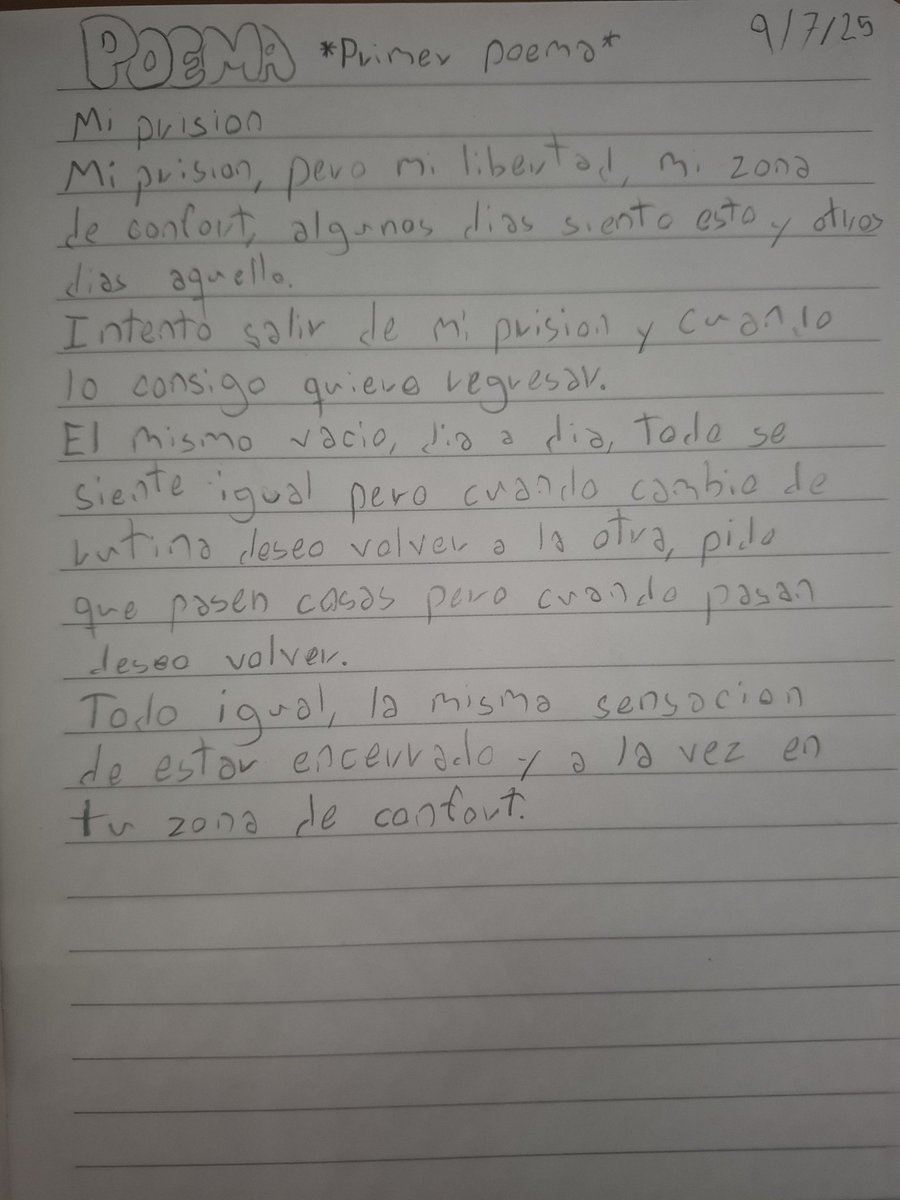 POEMA *Primer poema* 9/7/25
Mi prision
Mi prision, pero mi libertad, mi zona
de confort, algunos dias siento esto y otros
dias aquello.
Intento salir de mi prision y cuando
lo consigo quiero regresar.
El mismo vacio, dia a dia, todo se
siente igual pero cuando cambio de
rutina deseo volver a la otra, pido
que pasen cosas pero cuando pasan
deseo volver.
Todo igual, la misma sensacion
de estar encerrado y a la vez en
tu zona de confort.